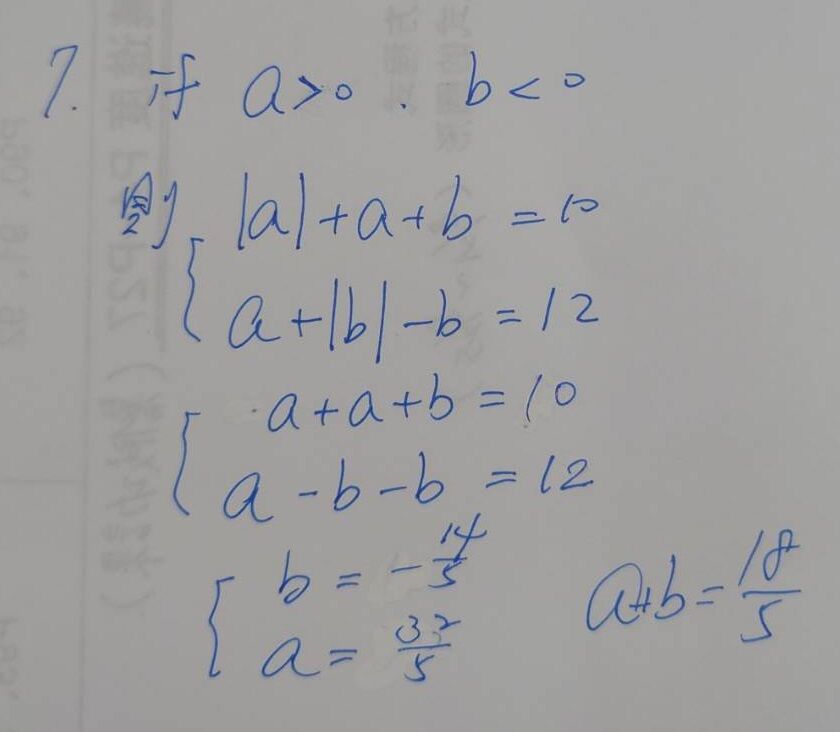 7. 若 a>0 . b<0
則 |a|+a+b=10
a+|b|-b=12
a+a+b=10
a-b-b=12
b=-14/5
a=32/5 a+b=18/5